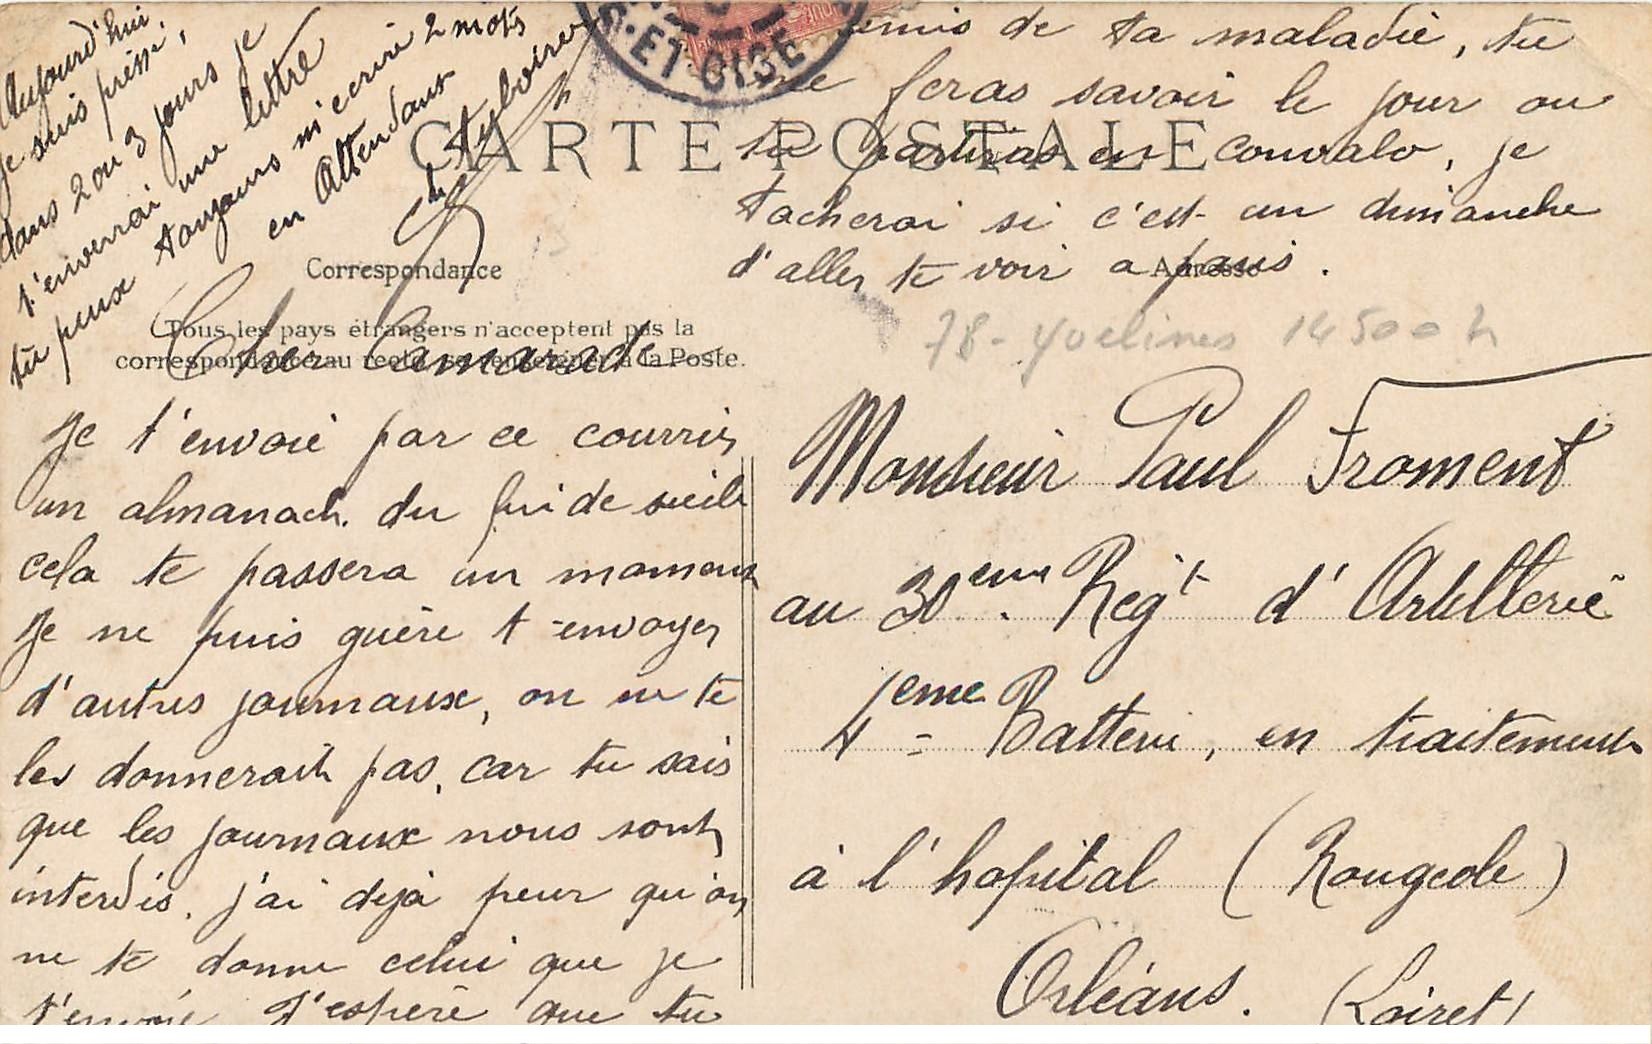 Aujourd'hui
je suis pressé,
dans 2 ou 3 jours je
t'enverrai une lettre
tu peux toujours m'ecrire 2 mots
en Attendant
S.ET OISE
CARTE POSTALE
Correspondance
Adresse
Tous les pays étrangers n'acceptent pas la
correspondance au recto, se renseigner à la Poste.
Cher Camarade
Je t'envoie par ce courrier
un almanach. du fin de siècle
cela te passera un moment
Je ne puis guère t-envoyer
d'autres journaux, on ne te
les donnerait pas, car tu sais
que les journaux nous sont
interdis. j'ai dejà peur qu'on
ne te donne celui que je
t'envoie J'espère que tu
remis de ta maladie, tu
me feras savoir le jour ou
tu partiras en convalo, je
tacherai si c'est un dimanche
d'aller te voir a paris.
78 - Yvelines 14500 h
Monsieur Paul Froment
au 30eme Regt d'Artillerie
4eme Batterie, en traitement
à l'hopital (Rougeole)
Orléans. (Loiret)